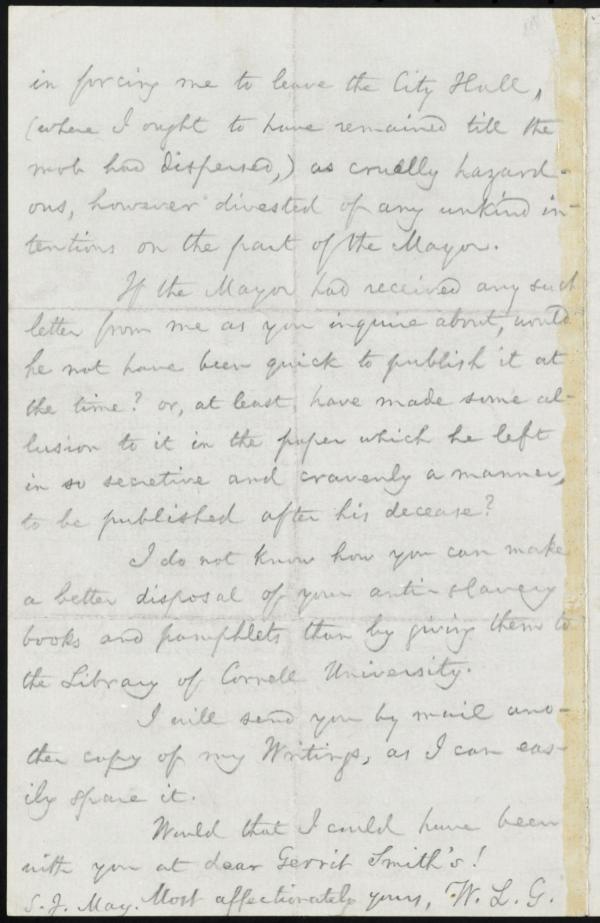 in forcing me to leave the City Hall,
(where I ought to have remained till the
mob had dispersed,) as cruelly hazard-
ous, however divested of any unkind in-
tentions on the part of the Mayor.
If the Mayor had received any such
letter from me as you inquire about, would
he not have been quick to publish it at
the time? or, at least, have made some al-
lusion to it in the paper which he left
in so secretive and cravenly a manner,
to be published after his decease?
I do not know how you can make
a better disposal of your anti-slavery
books and pamphlets than by giving them to
the Library of Cornell University.
I will send you by mail ano-
ther copy of my Writings, as I can eas-
ily spare it.
Would that I could have been
with you at dear Gerrit Smith's!
S. J. May. Most affectionately yours, W. L. G.